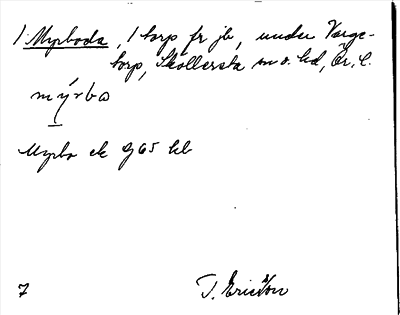 1. Myrboda, 1 torp fr jb, under Varge-
torp, Sköllersta sn o. hd, Ör. l.
mýrba
Myrbo ek Ö 65 hb
7 T. Ericsson